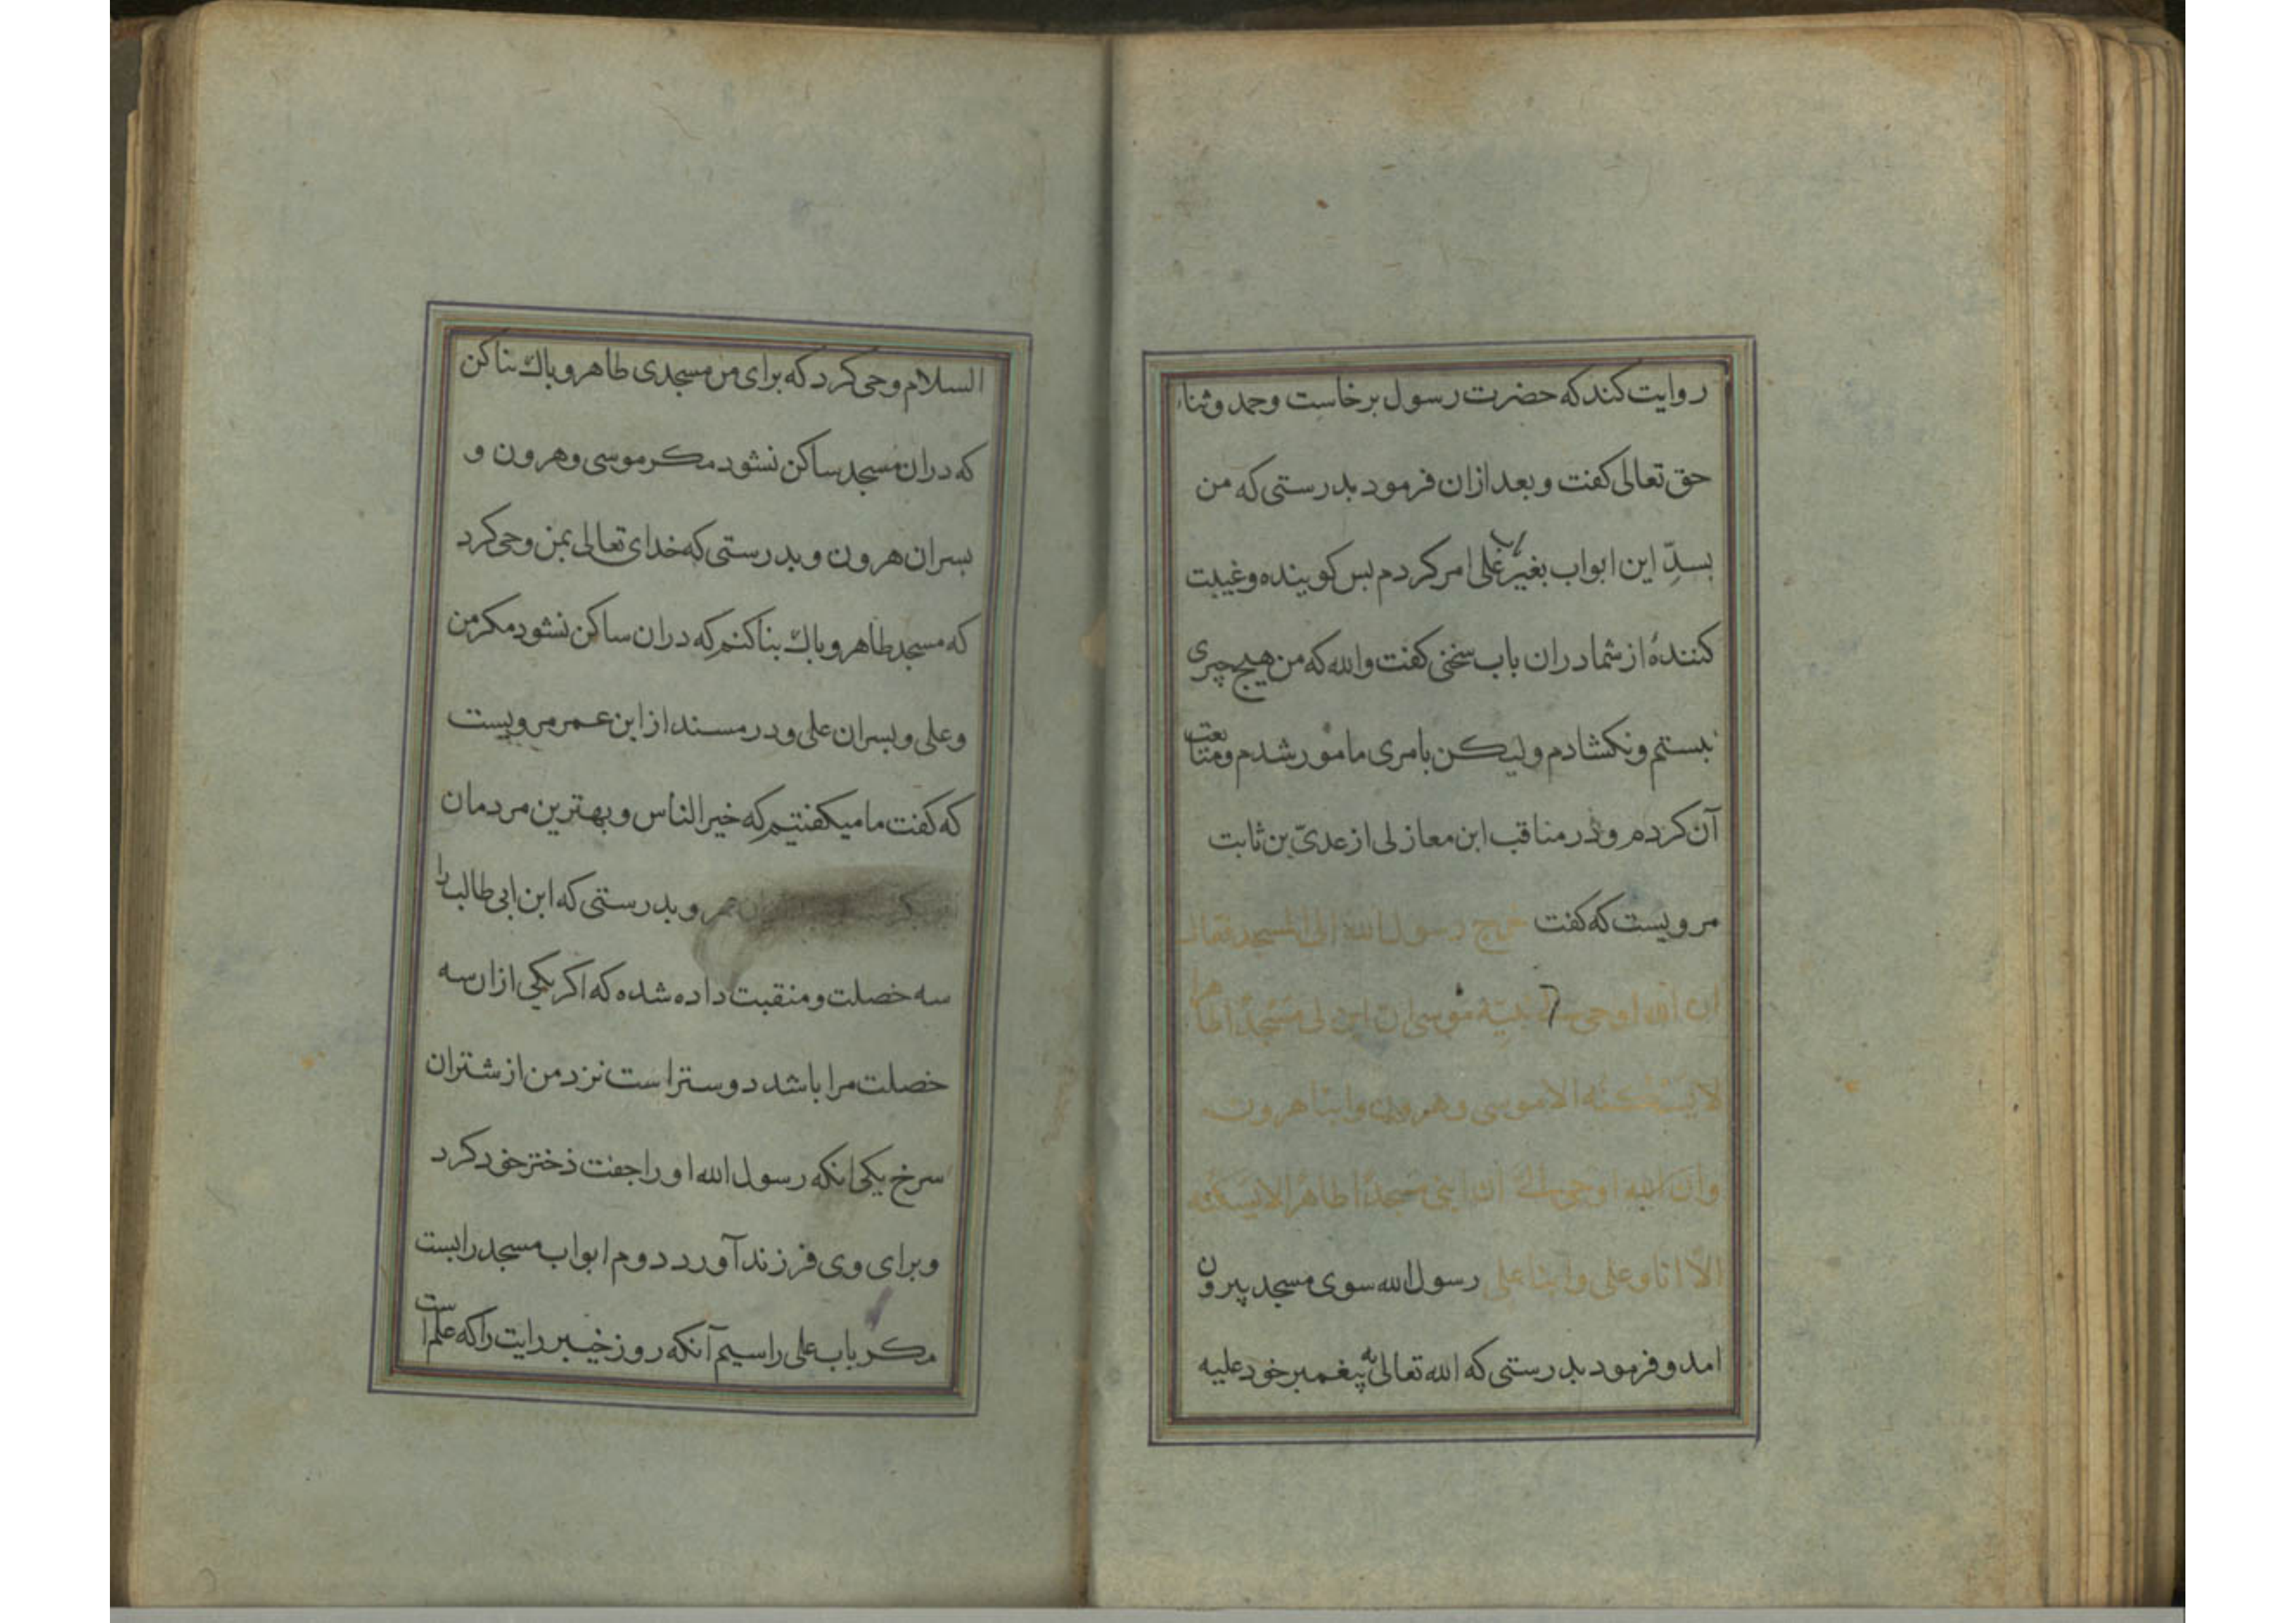 روایت کند که حضرت رسول برخاست وحمد وثناء
حق تعالی کفت وبعد ازان فرمود بدرستی که من
بسدّ این ابواب بغیر باب علی امر کردم بس کوینده وغیبت
کنندهٔ از شما دران باب سخنی کفت والله که من هیچ چیری
نبستم ونکشادم ولیکن بامری مامور شدم ومتابعت
آن کردم ودر مناقب ابن معازلی از عدیّ بن ثابت
مرویست که کفت خرج رسول الله الی المسجد فقال
ان الله اوحی الی نبیه موسی ان ابن لی مسجدا طاهرا
لا یسکنه الا موسی وهرون وابنا هرون
وان الله اوحی الی ان ابنی مسجدا طاهرا لا یسکنه
الا انا وعلی وابنا علی رسول الله سوی مسجد بیرون
امد وفرمود بدرستی که الله تعالی به پیغمبر خود علیه
السلام وحی کرد که برای من مسجدی طاهر وباك بنا کن
که دران مسجد ساکن نشود مکر موسی وهرون و
بسران هرون وبدرستی که خدای تعالی بمن وحی کرد
که مسجد طاهر وباك بنا کنم که دران ساکن نشود مکر من
وعلی وبسران علی ودر مسند از ابن عمر مرویست
که کفت ما میکفتیم که خیر الناس وبهترین مردمان
وبدرستی که ابن ابی طالب را
سه خصلت ومنقبت داده شده که اکر یکی ازان سه
خصلت مرا باشد دوستر است نزد من از شتران
سرخ یکی انکه رسول الله او را جفت ذختر خود کرد
وبرای وی فرزند آورد دوم ابواب مسجد را بست
مکر باب علی را سیم آنکه روز خیبر رایت را که علم است